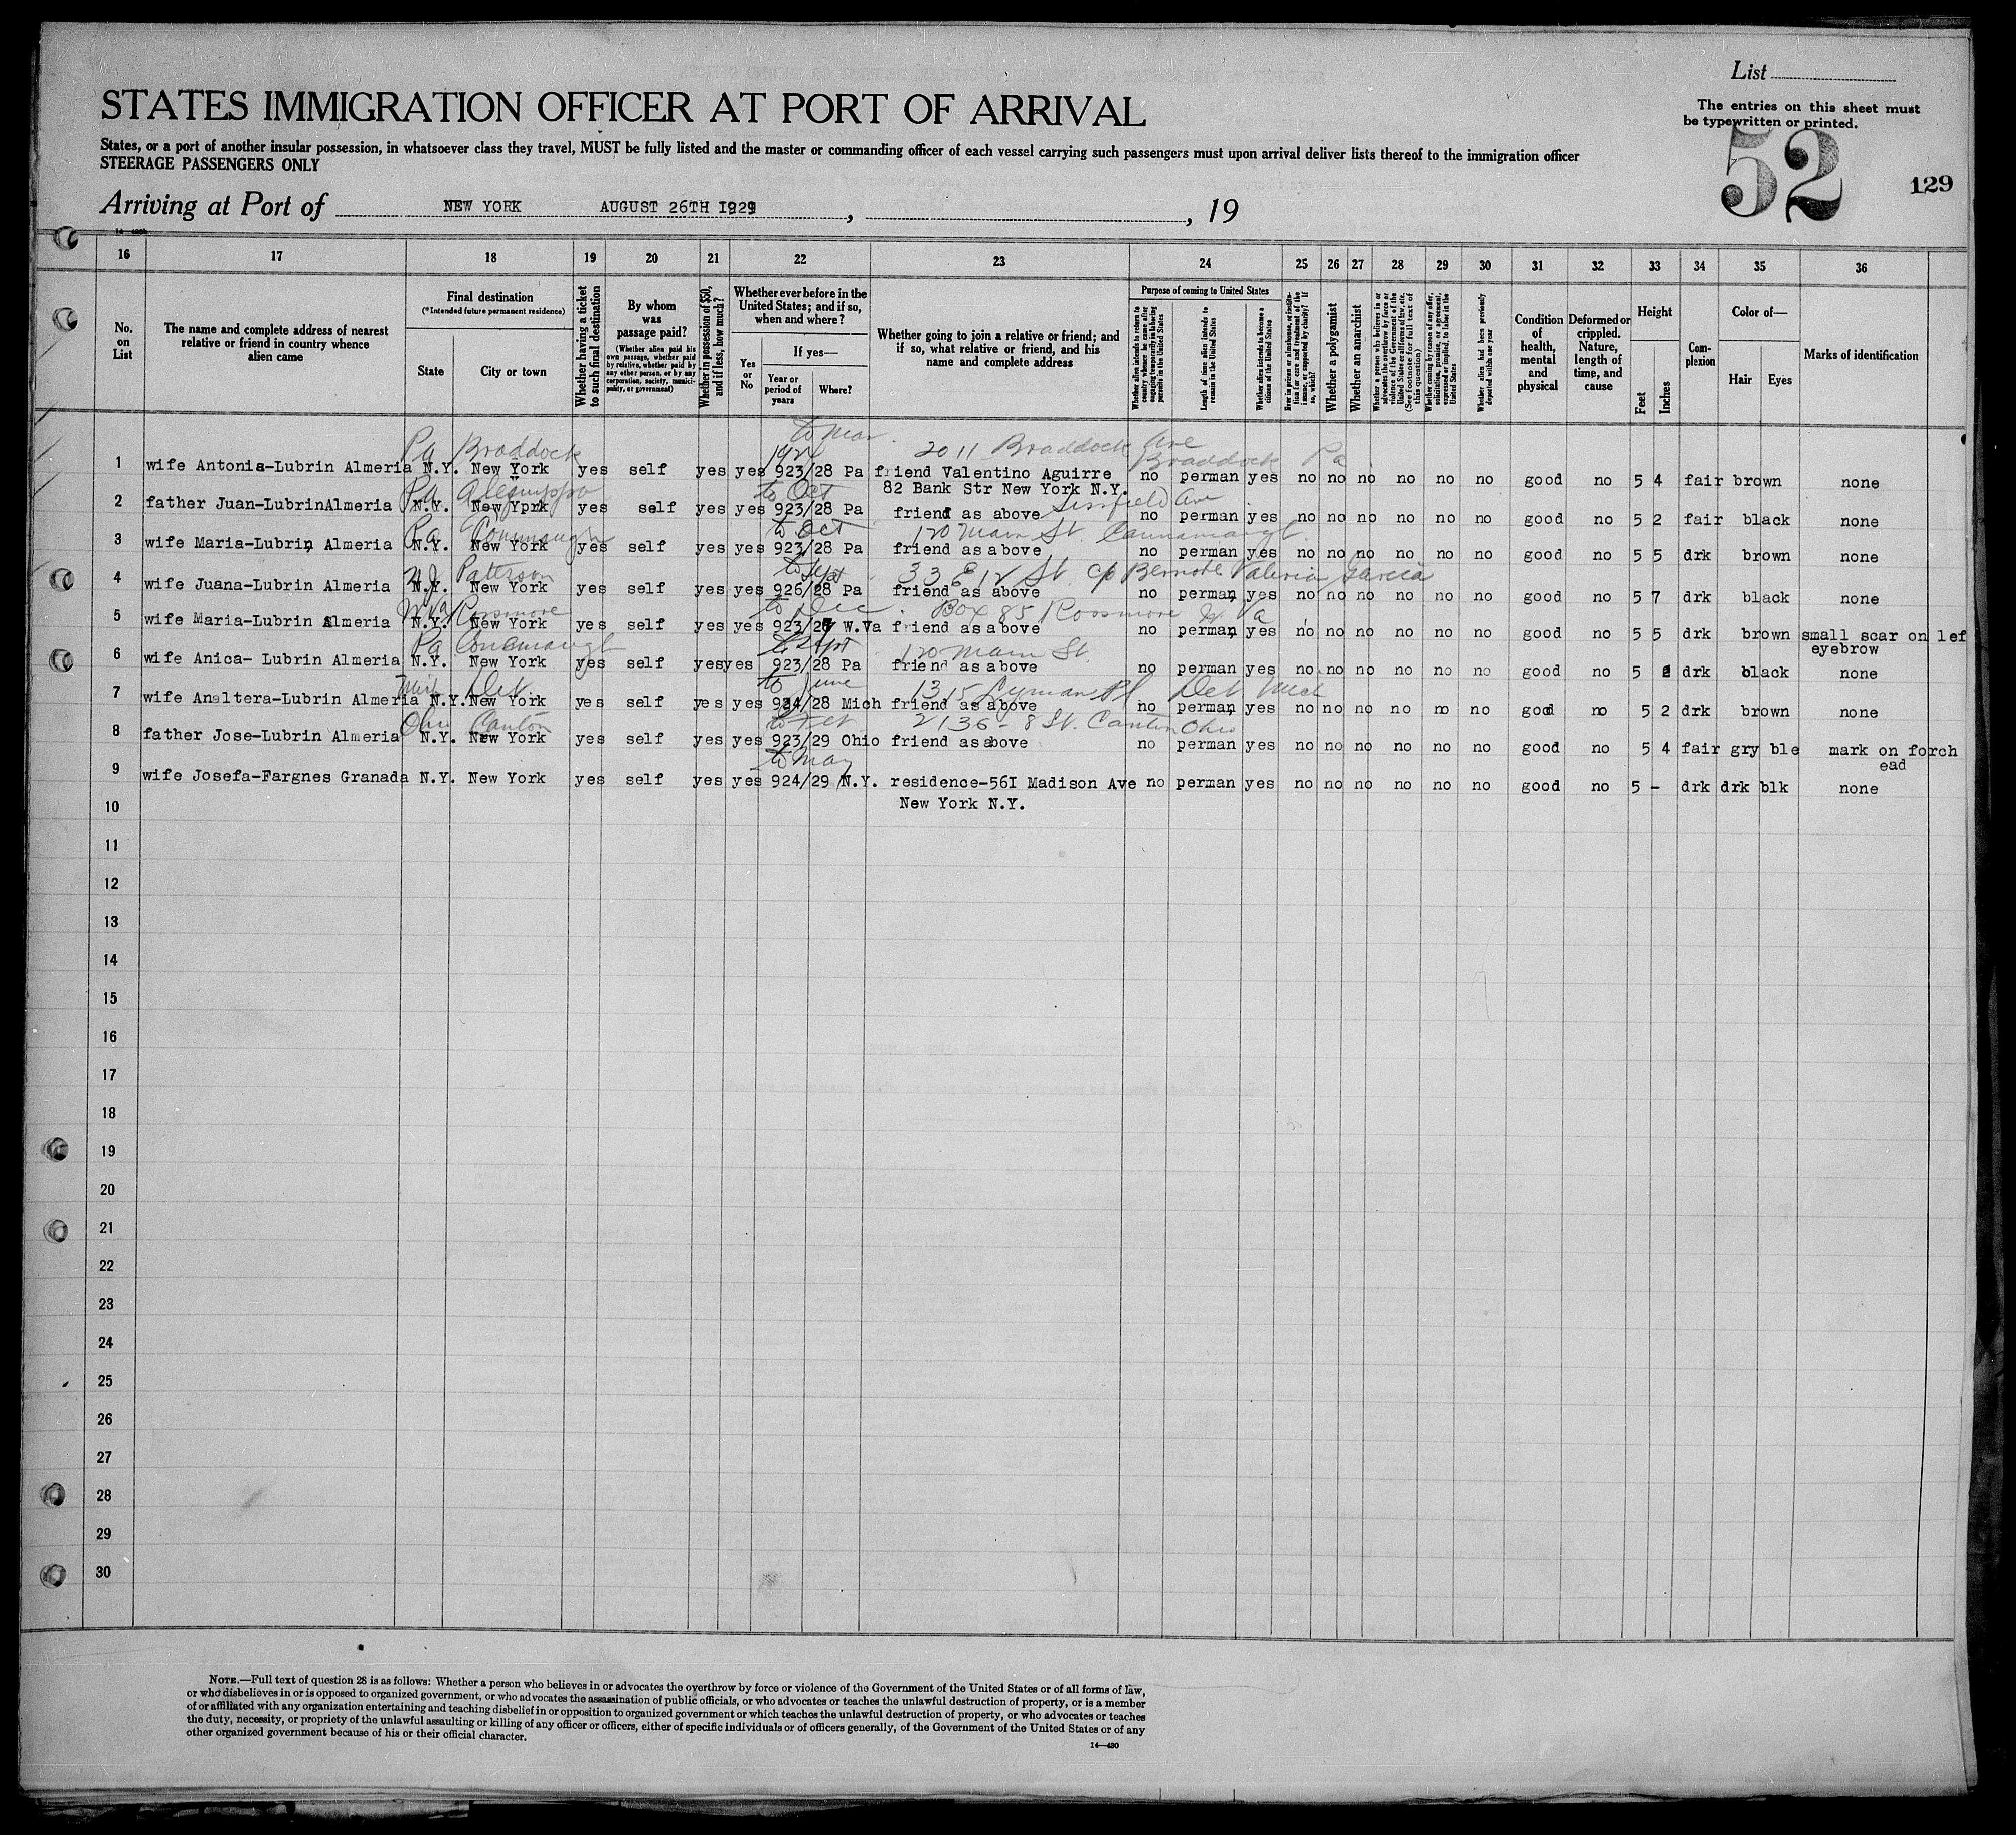 List
STATES IMMIGRATION OFFICER AT PORT OF ARRIVAL
The entries on this sheet must
be typewritten or printed.
States, or a port of another insular possession, in whatsoever class they travel, MUST be fully listed and the master or commanding officer of each vessel carrying such passengers must upon arrival deliver lists thereof to the immigration officer
STEERAGE PASSENGERS ONLY
52
129
Arriving at Port of NEW YORK AUGUST 26TH 1929, , 19
16 17 18 19 20 21 22 23 24 25 26 27 28 29 30 31 32 33 34 35 36
No. on List
The name and complete address of nearest relative or friend in country whence alien came
Final destination
(*Intended future permanent residence)
State
City or town
Whether having a ticket to such final destination
By whom was passage paid?
(Whether alien paid his own passage, whether paid by relative, whether paid by any other person, or by any corporation, society, municipality, or government)
Whether in possession of $50, and if less, how much?
Whether ever before in the United States; and if so, when and where?
Yes or No
If yes—
Year or period of years
Where?
Whether going to join a relative or friend; and if so, what relative or friend, and his name and complete address
Purpose of coming to United States
Whether alien intends to return to country whence he came after engaging temporarily in laboring pursuits in the United States
Length of time alien intends to remain in the United States
Whether alien intends to become a citizen of the United States
Ever in prison or almshouse, or institution for care and treatment of the insane, or supported by charity? If so, which?
Whether a polygamist
Whether an anarchist
Whether a person who believes in or advocates the overthrow by force or violence of the Government of the United States or all forms of law, etc. (See footnote for full text of this question)
Whether coming by reason of any offer, solicitation, promise, or agreement, expressed or implied, to labor in the United States
Whether alien had been previously deported within one year
Condition of health, mental and physical
Deformed or crippled. Nature, length of time, and cause
Height
Feet
Inches
Complexion
Color of—
Hair
Eyes
Marks of identification
Pa Braddock to Mar. 2011 Braddock Ave
Braddock Pa
1 wife Antonia-Lubrin Almeria N.Y. New York yes self yes yes 923/28 Pa friend Valentino Aguirre no perman yes no no no no no no good no 5 4 fair brown none
82 Bank Str New York N.Y.
Pa to Oct Ave
2 father Juan-LubrinAlmeria N.Y. New Yprk yes self yes yes 923/28 Pa friend as above no perman yes no no no no no no good no 5 2 fair black none
Pa to Oct 120 Main St.
3 wife Maria-Lubrin, Almeria N.Y. New York yes self yes yes 923/28 Pa friend as above no perman yes no no no no no no good no 5 5 drk brown none
N.J. Patterson to Sept 33 E 12 St. c/o Valeria Garcia
4 wife Juana-Lubrin Almeria N.Y. New York yes self yes yes 926/28 Pa friend as above no perman, yes no no no no no no good no 5 7 drk black none
W Va Rossmore to Dec. Box 85 Rossmore W Va
5 wife Maria-Lubrin Almeria N.Y. New York yes self yes yes 923/27 W.Va friend as above no perman, yes no no no no no no good no 5 5 drk brown small scar on lef
eyebrow
Pa to Sept 120 Main St.
6 wife Anica- Lubrin Almeria N.Y. New York yes self yes yes 923/28 Pa friend as above no perman yes no no no no no no good no 5 2 drk black none
Mich Det. to June 1315 Lyman Pl Det Mich
7 wife Analtera-Lubrin Almeria N.Y. New York yes self yes yes 924/28 Mich friend as above no perman, yes no no no no no no good no 5 2 drk brown none
Ohio Canton to Feb 2136 - 8 St. Canton Ohio
8 father Jose-Lubrin Almeria N.Y. New York yes self yes yes 923/29 Ohio friend as above no perman yes no no no no no no good no 5 4 fair gry ble mark on forch
ead
to May
9 wife Josefa-Fargnes Granada N.Y. New York yes self yes yes 924/29 N.Y. residence-56I Madison Ave no perman yes no no no no no no good no 5 - drk drk blk none
10 New York N.Y.
11
12
13
14
15
16
17
18
19
20
21
22
23
24
25
26
27
28
29
30
NOTE.—Full text of question 28 is as follows: Whether a person who believes in or advocates the overthrow by force or violence of the Government of the United States or of all forms of law,
or who disbelieves in or is opposed to organized government, or who advocates the assassination of public officials, or who advocates or teaches the unlawful destruction of property, or is a member
of or affiliated with any organization entertaining and teaching disbelief in or opposition to organized government or which teaches the unlawful destruction of property, or who advocates or teaches
the duty, necessity, or propriety of the unlawful assaulting or killing of any officer or officers, either of specific individuals or of officers generally, of the Government of the United States or of any
other organized government because of his or their official character.
14—430